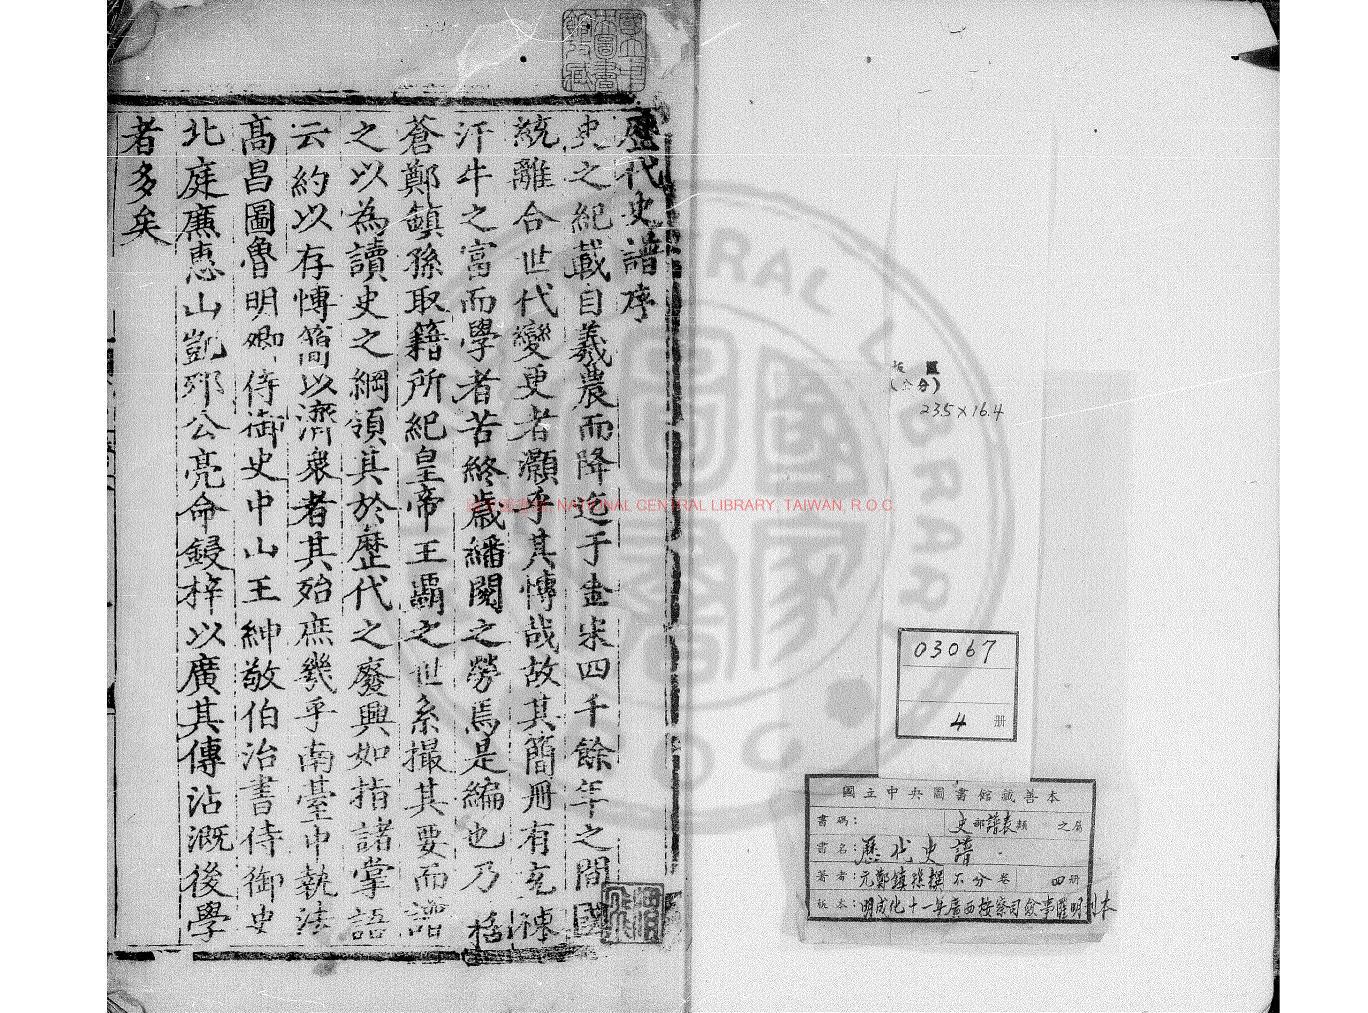 歷代史譜序
史之紀載自羲農而降迄于金宋四千餘年之間國
統離合世代變更者灝乎其博哉故其簡冊有充棟
汗牛之富而學者苦終歲繙閱之勞焉是編也乃括
蒼鄭鎮孫取籍所紀皇帝王霸之世系撮其要而譜
之以為讀史之綱領其於歷代之廢興如指諸掌語
云約以存博簡以濟衆者其殆庶幾乎南臺中執法
高昌圖魯明卿侍御史中山王紳敬伯治書侍御史
北庭廉惠山凱邳公亮命鋟梓以廣其傳沾溉後學
者多矣
國立中央圖書館藏
(公分)
23.5×16.4
03067
4 册
國立中央圖書館藏善本
書碼： 史部譜表類 之屬
書名：歷代史譜
著者：元鄭鎮孫撰 不分卷 四册
版本：明成化十一年廣西按察司僉事羅明刊本
NATIONAL CENTRAL LIBRARY, TAIWAN, R.O.C.